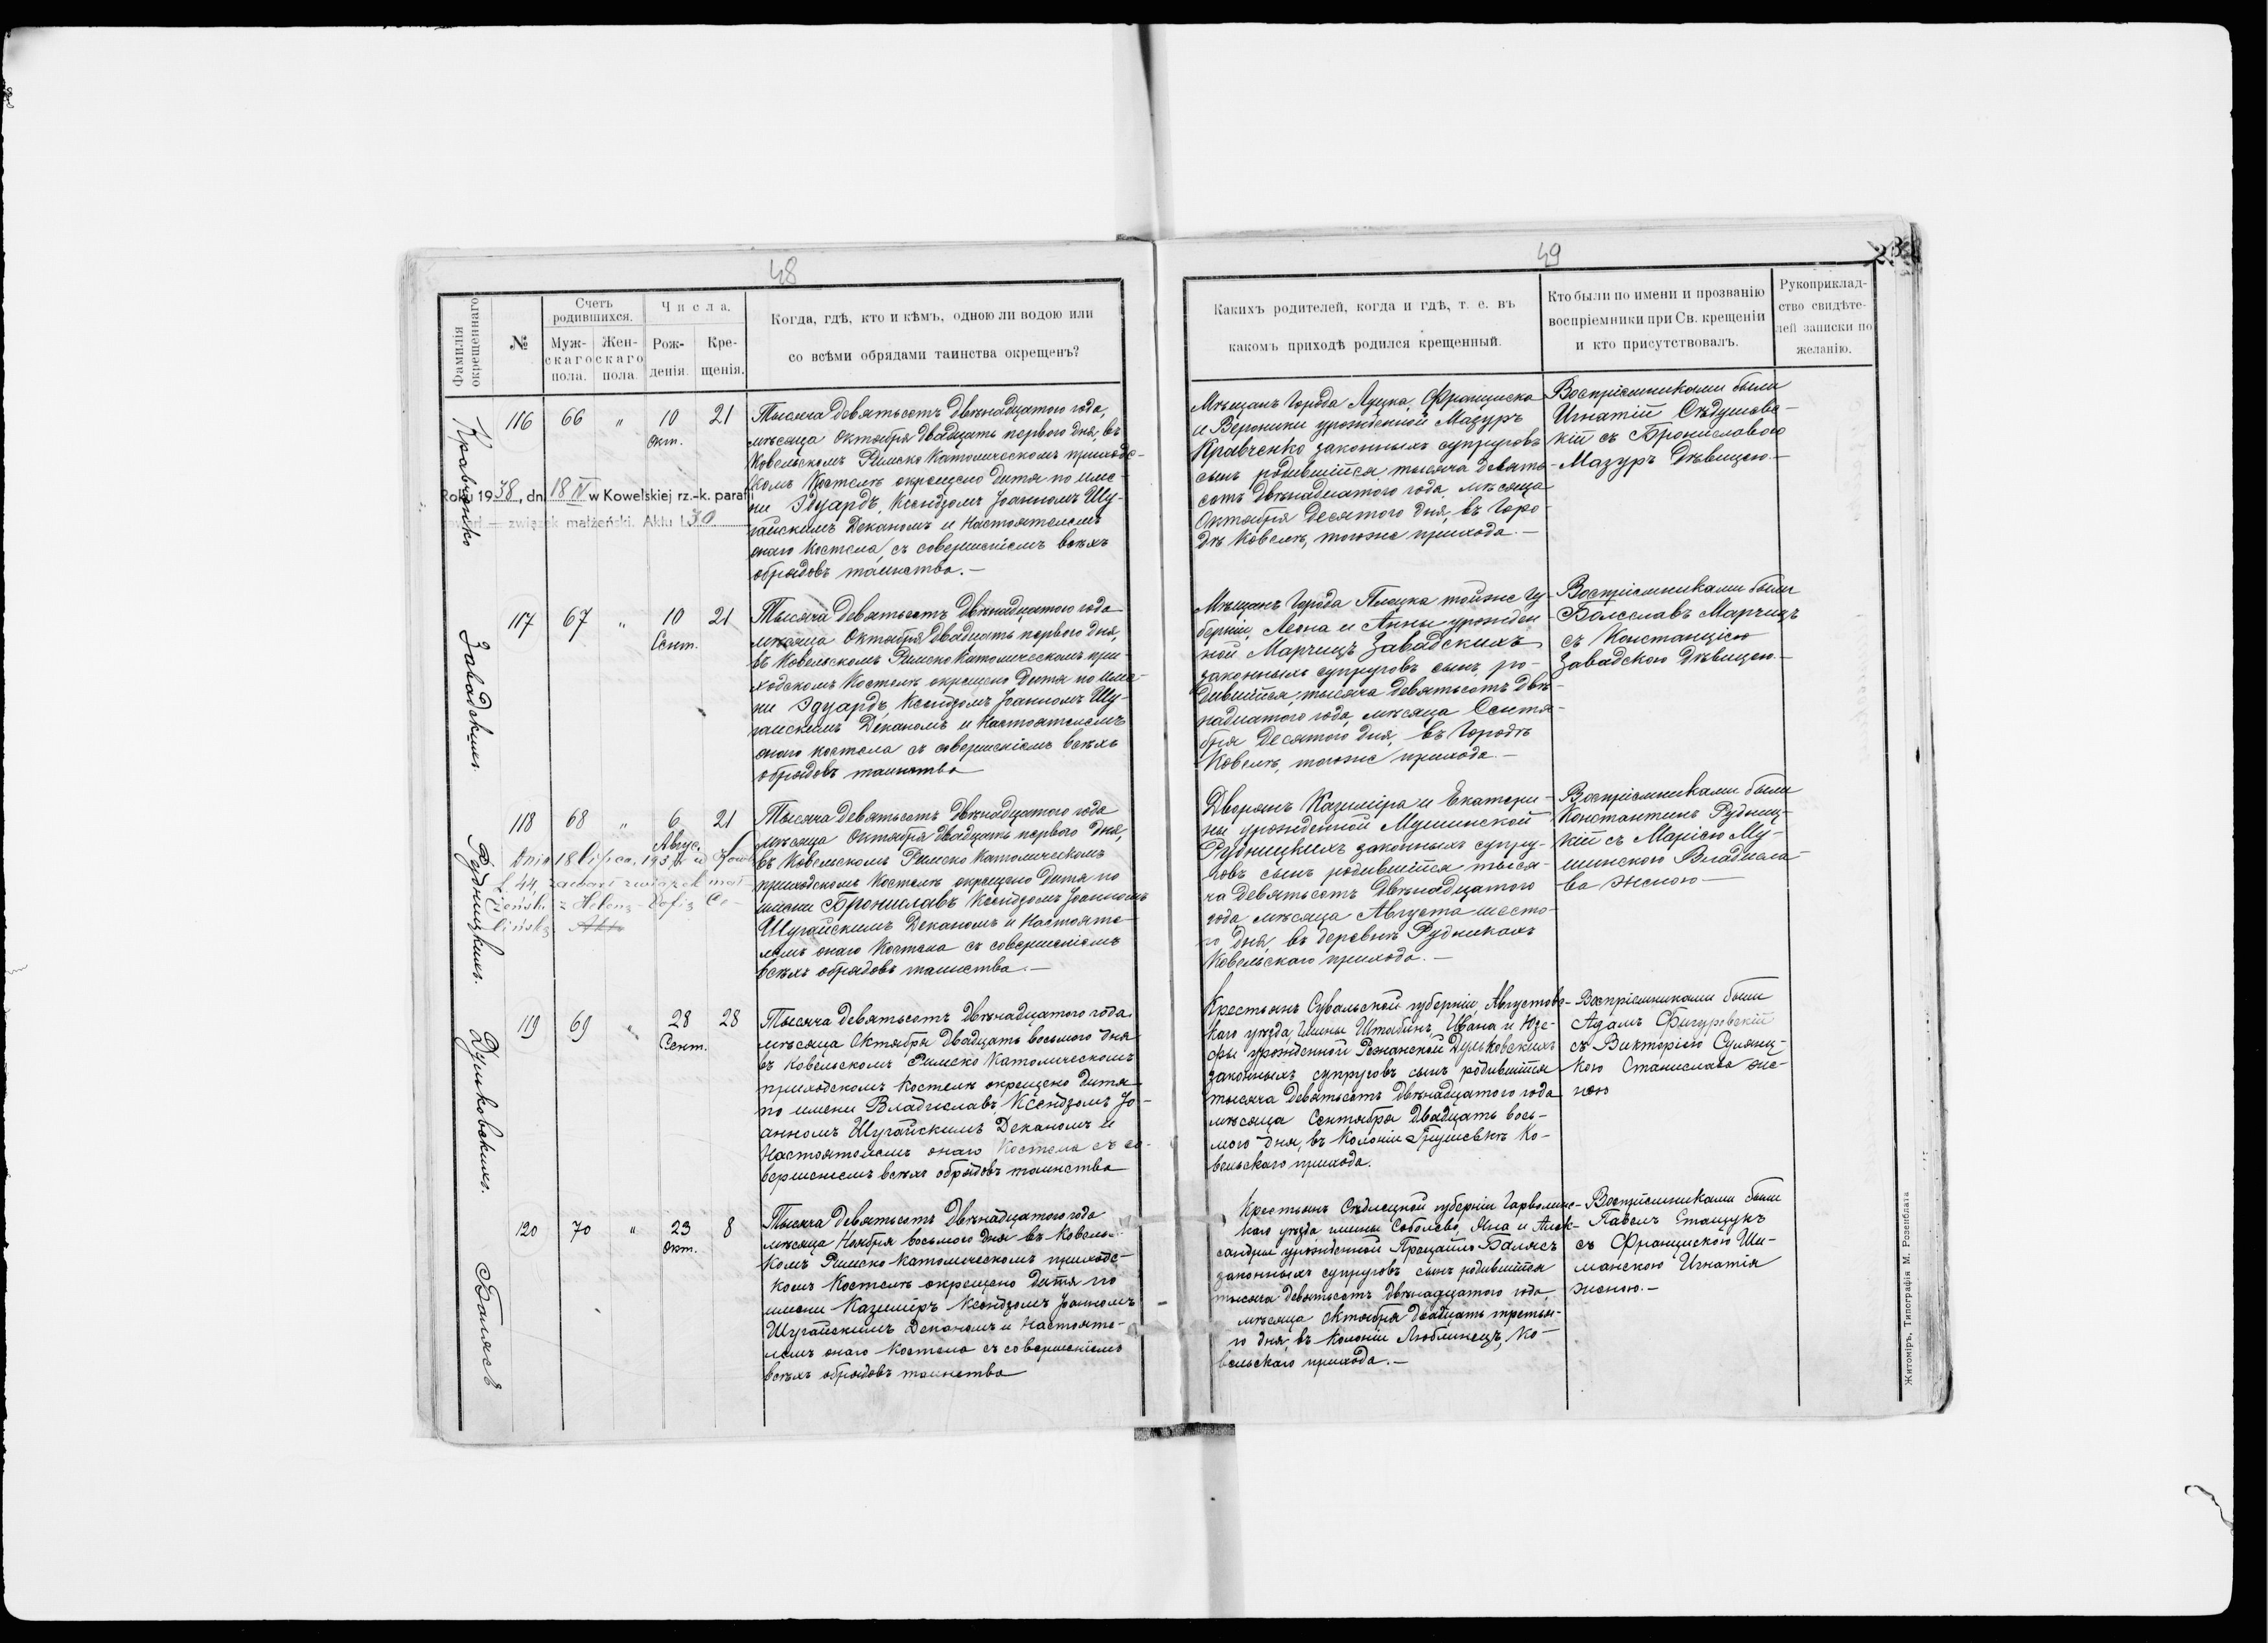 48
Фамилія окрещеннаго.
№
Счетъ родившихся.
Муж-
скаго
пола.
Жен-
скаго
пола.
Числа.
Рож-
денія.
Кре-
щенія.
Когда, гдѣ, кто и кѣмъ, одною ли водою или
со всѣми обрядами таинства окрещенъ?
Кравченко
116 66 " 10 Окт. 21
Тысяча девятьсотъ двѣнадцатого года,
мѣсяца Октября двадцать первого дня, въ
Ковельскомъ Римско Католическомъ приходс-
комъ Костелѣ окрещено дитя по име-
ни Эдуардъ, Ксендзомъ Іоанномъ Шу-
гайскимъ Деканомъ и Настоятелемъ
онаго Костела, съ совершеніемъ всѣхъ
обрядовъ таинства.—
Roku 1938, dn. 18 IV w Kowelskiej rz.-k. parafji
zawarł — związek małżeński. Aktu l. 30
Завадскихъ.
117 67 " 10 Сент. 21
Тысяча девятьсотъ двѣнадцатого года
мѣсяца Октября двадцать первого дня,
въ Ковельскомъ Римско Католическомъ при-
ходскомъ Костелѣ окрещено дитя по име-
ни Эдуардъ, Ксендзомъ Іоанномъ Шу-
гайскимъ Деканомъ и Настоятелемъ
онаго костела съ совершеніемъ всѣхъ
обрядовъ таинства
Рудницкихъ.
118 68 " 6 Авгус. 21
Тысяча девятьсотъ двѣнадцатого года
мѣсяца Октября двадцать первого дня,
въ Ковельскомъ Римско Католическомъ
приходскомъ Костелѣ окрещено дитя по
имени Брониславъ Ксендзомъ Іоанномъ
Шугайскимъ Деканомъ и Настояте-
лемъ онаго Костела съ совершеніемъ
всѣхъ обрядовъ таинства.—
Dnia 18 lipca, 193
L. 44, zawarł związek mał-
żeński z Heleną-Zofią Ce-
lińską
Дульковскихъ.
119 69 " 28 Сент. 28
Тысяча девятьсотъ двѣнадцатого года
мѣсяца Октября двадцать восьмого дня
въ Ковельскомъ Римско Католическомъ
приходскомъ Костелѣ окрещено дитя
по имени Владиславъ, Ксендзомъ Іо-
анномъ Шугайскимъ Деканомъ и
Настоятелемъ онаго Костела съ со-
вершеніемъ всѣхъ обрядовъ таинства
Балясъ
120 70 " 23 Окт. 8
Тысяча девятьсотъ двѣнадцатого года
мѣсяца Ноября восьмого дня въ Ковельс-
комъ Римско Католическомъ приходс-
комъ Костелѣ окрещено дитя по
имени Казиміръ Ксендзомъ Іоанномъ
Шугайскимъ Деканомъ и Настояте-
лемъ онаго Костела съ совершеніемъ
всѣхъ обрядовъ таинства
49
Какихъ родителей, когда и гдѣ, т. е. въ
какомъ приходѣ родился крещенный.
Кто были по имени и прозванію
воспріемники при Св. крещеніи
и кто присутствовалъ.
Рукоприклад-
ство свидѣте-
лей записки по
желанію.
Мѣщанъ Города Луцка, Франциска
и Вероники урожденной Мазуръ
Кравченко законныхъ супруговъ
сынъ родившійся тысяча девять-
сотъ двѣнадцатого года, мѣсяца
Октября десятого дня, въ Горо-
дѣ Ковелѣ, тогоже прихода.—
Воспріемниками были
Игнатій
кій съ Брониславою
Мазуръ Дѣвицею.—
Мѣщанъ Города Плоцка тойже Гу-
берніи, Леона и Анны урожден
ной Марчицъ Завадскихъ
законныхъ супруговъ сынъ, ро-
дившійся, тысяча девятьсотъ двѣ-
надцатого года, мѣсяца Сентя-
бря десятого дня, въ Городѣ
Ковелѣ, тогоже прихода.—
Воспріемниками были
Болеславъ Марчицъ
съ Констанціею
Завадскою Дѣвицею.—
Дворянъ Казиміра и Екатери-
ны урожденной Мушинской
Рудницкихъ законныхъ супру-
говъ сынъ родившійся тыся-
ча девятьсотъ двѣнадцатого
года мѣсяца Августа шесто-
го дня, въ деревнѣ Рудникахъ
Ковельскаго прихода.—
Воспріемниками были
Константинъ Рудниц-
кій съ Маріею Му-
шинскою Владисла-
ва женою—
Крестьянъ Сувальской губерніи, Августовс-
каго уѣзда, гмины Штабинъ, Ивана и Юзе-
фы урожденной Рожанской Дульковскихъ
законныхъ супруговъ сынъ родившійся
тысяча девятьсотъ двѣнадцатого года
мѣсяца Сентября двадцать вось-
мого дня, въ Колоніи Грушевкѣ Ко-
вельскаго прихода.
Воспріемниками были
Адамъ Фигуровскій
съ Викторіею
кою Станислава же-
ною
Крестьянъ Сѣдлецкой губерніи Гарволинс-
каго уѣзда гмины Соболево, Яна и Алек-
сандры урожденной Балясъ
законныхъ супруговъ сынъ родившійся
тысяча девятьсотъ двѣнадцатого года,
мѣсяца Октября двадцать третья-
го дня, въ Колоніи Люблинецъ, Ко-
вельскаго прихода.—
Воспріемниками были
Павелъ Стащукъ
съ Францискою Ши-
манскою Игнатія
женою.—
Житоміръ, Типографія М. Розенблата